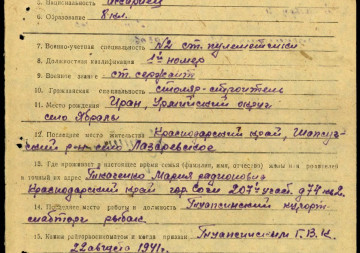 5. Национальность ассириец
6. Образование 8 кл.
7. Военно-учетная специальность №2 ст. пулеметчики
8. Должностная квалификация 1й номер
9. Военное звание ст. сержант
10. Гражданская специальность столяр-строитель
11. Место рождения Иран, Урмийский округ
село Ябрала
12. Последнее место жительства Краснодарский край, Шапсуг-
ский р-н село Лазаревское
13. Где проживает в настоящее время семья (фамилия, имя, отчество) жены или родителей
и точный их адрес Ткаченко Мария
Краснодарский край гор. Сочи
14. Последнее место работы и должность Туапсинский курорт-
снабторг рыбак
15. Каким райгорвоенкоматом и когда призван Туапсинским Г.В.К.
22 августа 1941г.